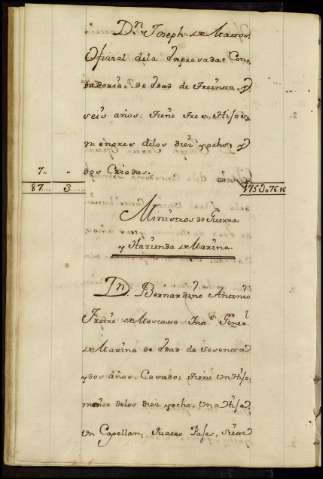 Dn. Joseph de
Oficial dela expresada Con
taduria, de edad de Treinta, y
seis años. Tiene tres Hijos
menores delos diez y ocho, y
7.. - dos Criados.
87... 3...
Ministros de Guerra
y Hazienda de Marina.
Dn. Bernardino Antonio
Freire Intte. Genl.
de Marina de edad de sesenta
y dos años, Casado, tiene un Hijo,
menor delos diez y ocho, una Hija,
un Capellan, Quatro Pajes,